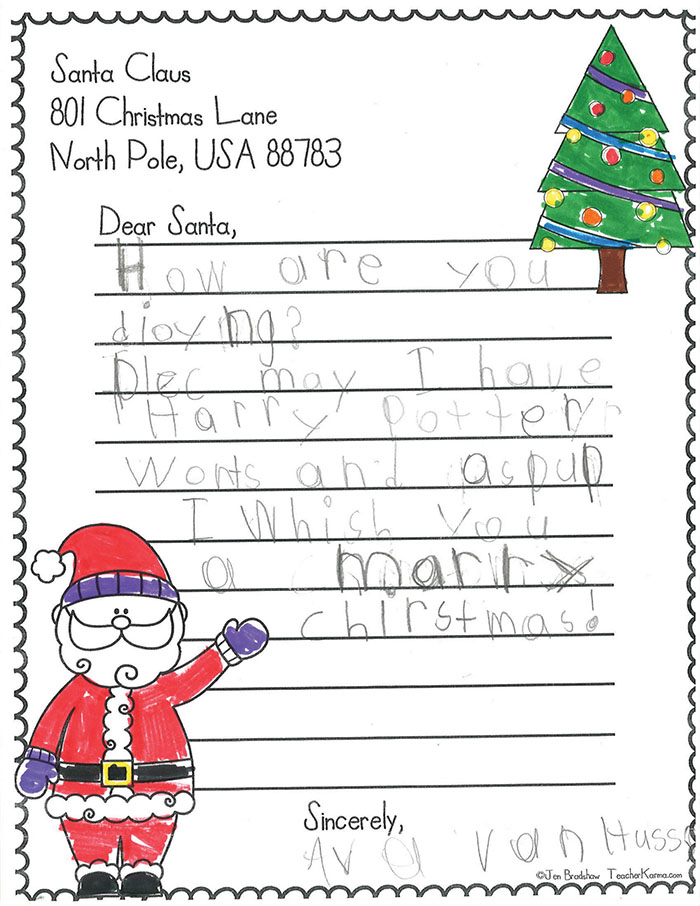 Santa Claus
801 Christmas Lane
North Pole, USA 88783
Dear Santa,
How are you
dioying?
Plec may I have
Harry Potter
Wonts and aspup
I Whish you
a marry
chirstmas!
Sincerely,
Ava van Huss
©Jen Bradshaw TeacherKarma.com